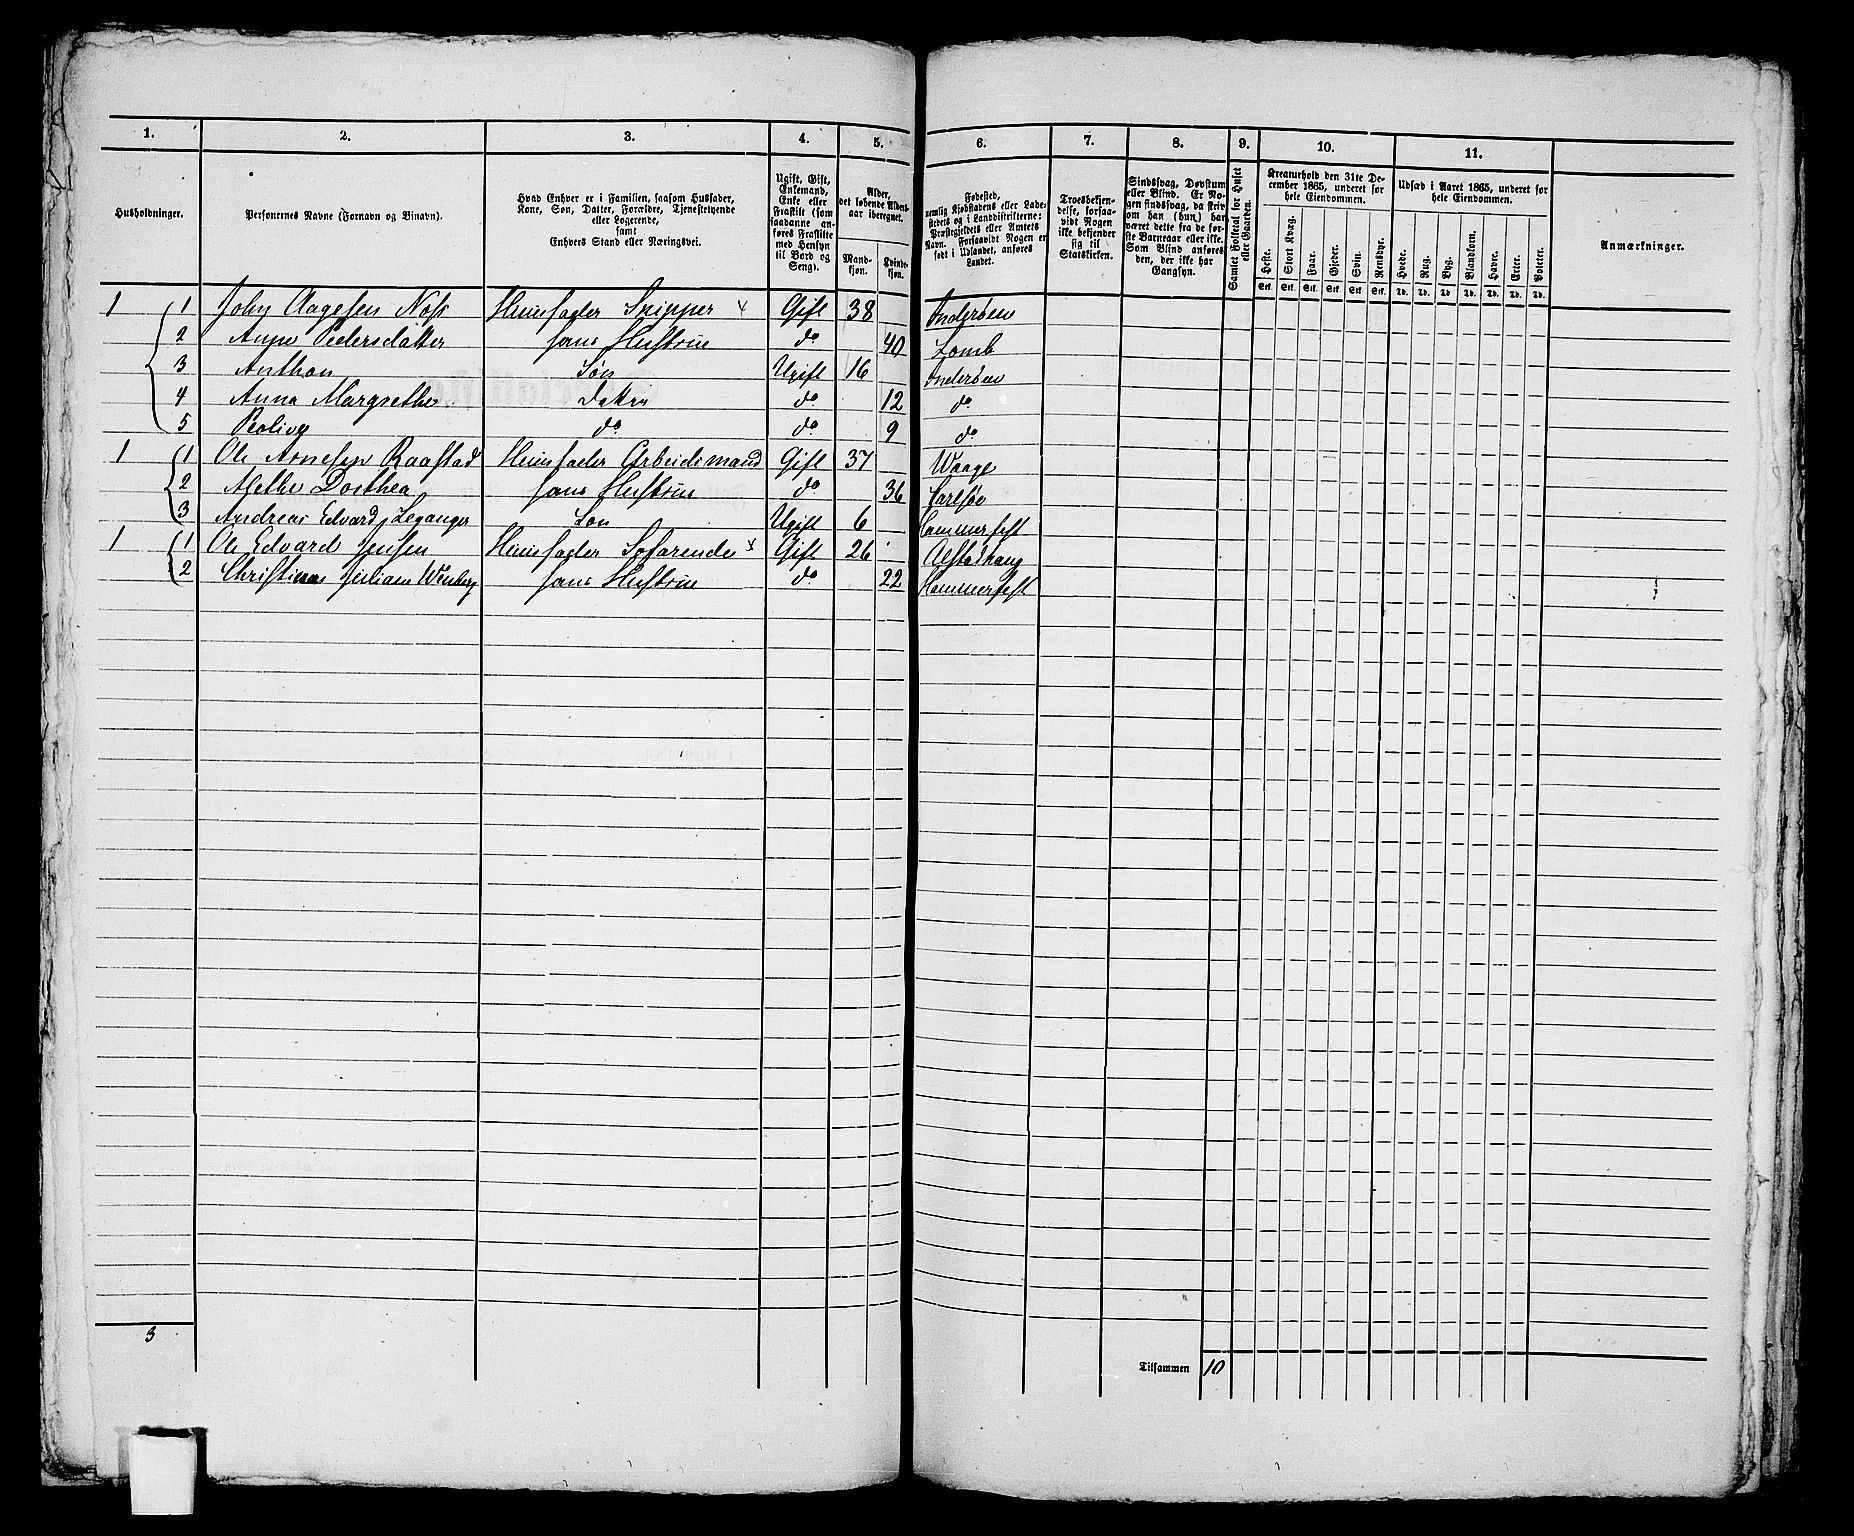 1. 2. 3. 4. 5. 6. 7. 8. 9. 10. 11.
Husholdninger.
Personernes Navne (Fornavn og Binavn).
Hvad Enhver er i Familien, saasom Husfader,
Kone, Søn, Datter, Forældre, Tjenestetyende
eller Logerende,
samt
Enhvers Stand eller Næringsvei.
Ugift, Gift,
Enkemand,
Enke eller
Fraskilt (som
saadanne an-
føres Fraskilte
med Hensyn
til Bord og
Seng).
Alder,
det løbende Alders-
aar iberegnet.
Mand-
kjøn.
Kvinde-
kjøn.
Fødested,
nemlig Kjøbstadens eller Lade-
stedets og i Landdistrikterne:
Præstegjeldets eller Amtets
Navn. Forsaavidt Nogen er
født i Udlandet, anføres
Landet.
Troesbekjen-
delse, forsaa-
vidt Nogen
ikke bekjender
sig til
Statskirken.
Sindssvag, Døvstum
eller Blind. Er No-
gen sindssvag, da skriv
om han (hun) har
været dette fra de før-
ste Barneaar eller ikke.
Som Blind anføres
den, der ikke har
Gangsyn.
Samlet Folketal for Huset
eller Gaarden.
Kreaturhold den 31te De-
cember 1865, underet for
hele Eiendommen.
Heste. Stort Kvæg. Faar. Gjeder. Svin. Rensdyr.
Stk. Stk. Stk. Stk. Stk. Stk.
Udsæd i Aaret 1865, underet for
hele Eiendommen.
Hvede. Rug. Byg. Blandkorn. Havre. Erter. Poteter.
Td. Td. Td. Td. Td. Td. Td.
Anmærkninger.
1 1 John Aagesen Noss Huusfader Skipper x Gift 38 Inderøen
2 Anne Pedersdatter hans Hustrue do 40 Lomb
3 Anthon Søn Ugift 16 Inderøen
4 Anna Margrethe Datter do 12 do
5 Peolive do do 9 do
1 1 Ole Arnesen Raastad Huusfader Arbeidsmand Gift 37 Waage
2 Agethe Dorthea hans Hustrue do 36 Carlsøe
3 Andreas Edvard Leganger Søn Ugift 6 Hammerfest
1 1 Ole Edvard Jensen Huusfader Søfarende x Gift 26 Alstadhaug
2 Christina Juliane Hustrue do 22 Hammerfest
3
Tilsammen 10